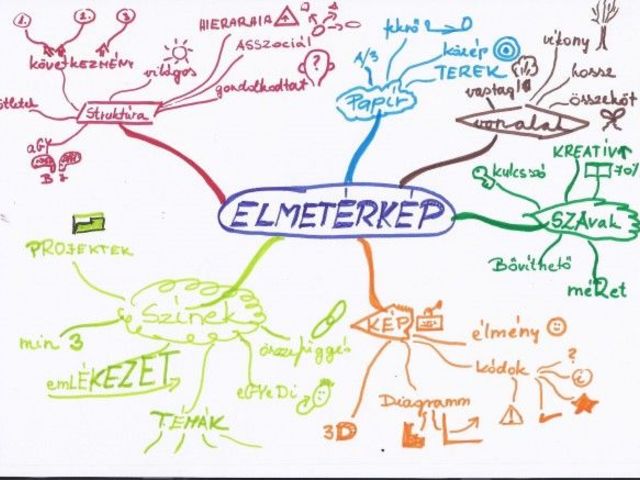 ELMETÉRKÉP
Struktúra
1.
2.
3.
következmény
világos
HIERARHIA
ASSZOCIÁL
gondolkodtat
ötletek
AGY
B J
Papír
A/3
fekvő
közép
TEREK
vonalak
vastag
vékony
hossz
összeköt
SZAvak
kulcsszó
KREATÍV
70%
Bővíthető
méRet
KÉP
élmény
kódok
?
Diagramm
3D
Színek
PROJEKTEK
min 3
emLÉKEZET
TÉMÁK
eGYeDi
összefüggés